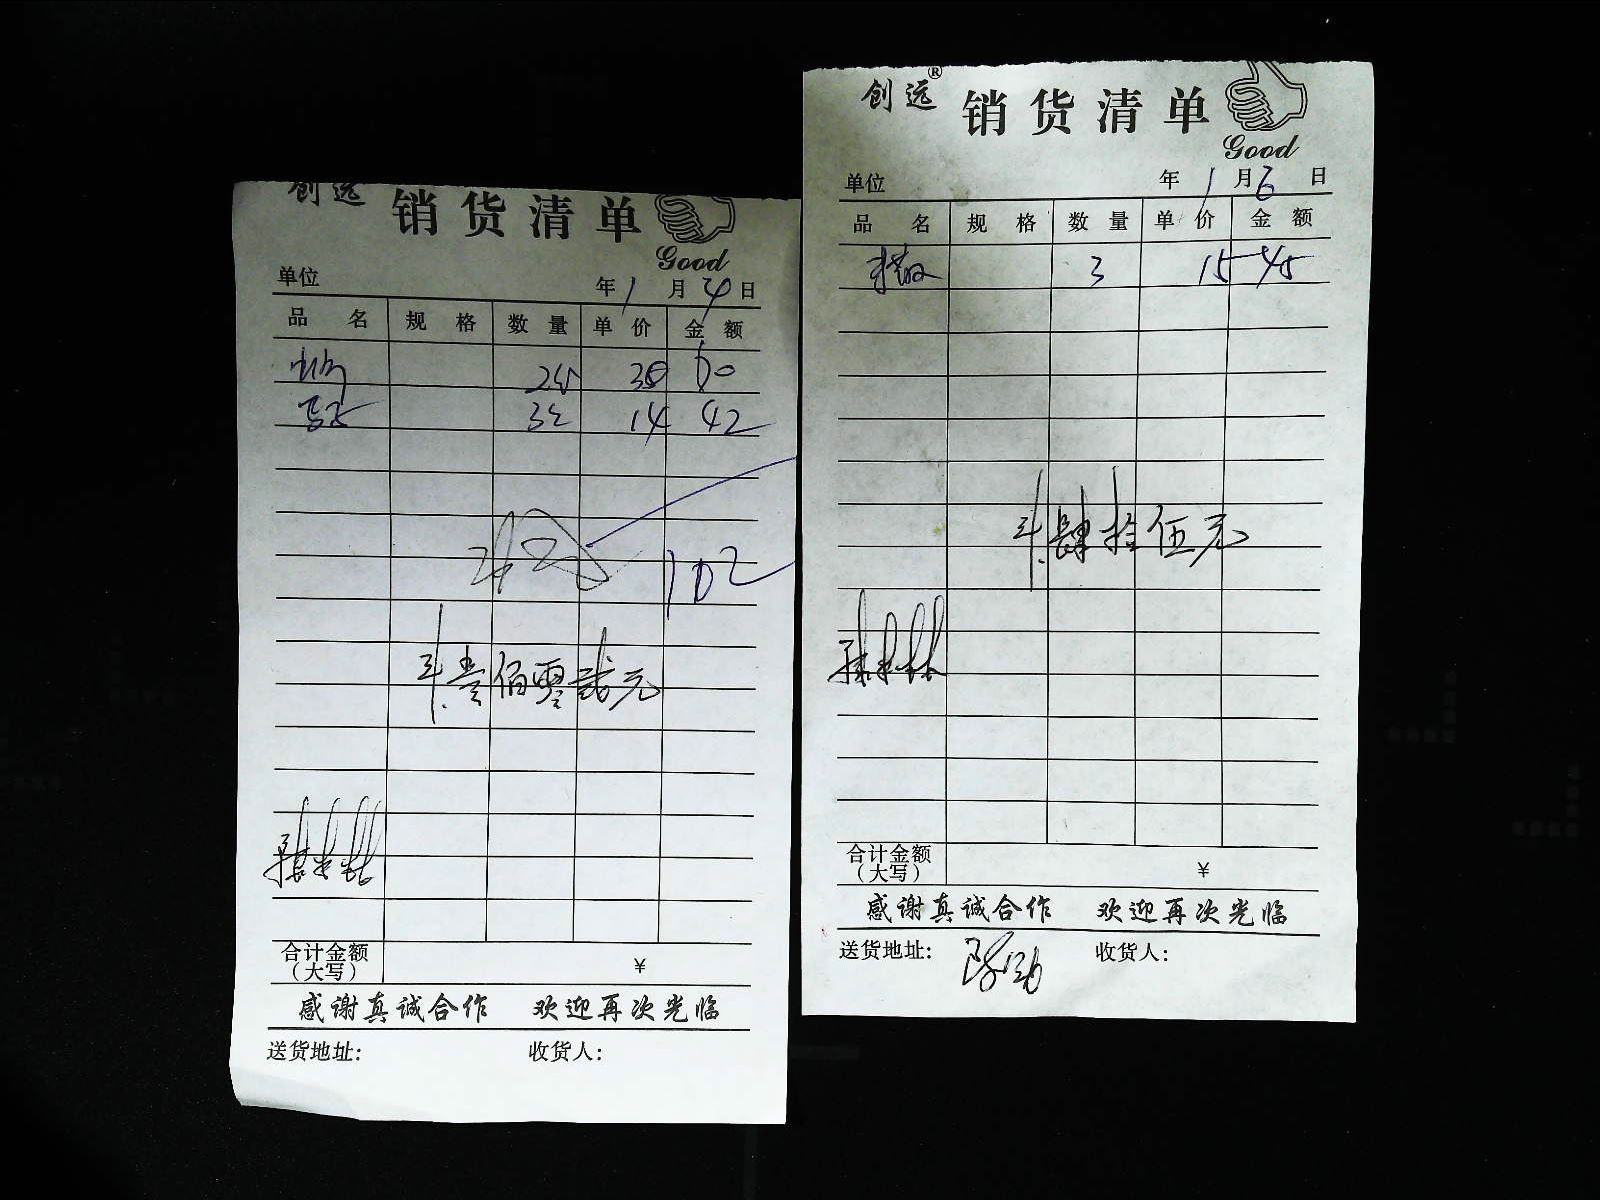 创远 销货清单
Good
单位 年1月4日
品名 规格 数量 单价 金额
2 30 60
3 14 42
102
计:壹佰零贰元
合计金额
(大写) ¥
感谢真诚合作 欢迎再次光临
送货地址: 收货人:
创远® 销货清单
Good
单位 年1月6日
品名 规格 数量 单价 金额
3 15 45
计:肆拾伍元
合计金额
(大写) ¥
感谢真诚合作 欢迎再次光临
送货地址: 收货人: